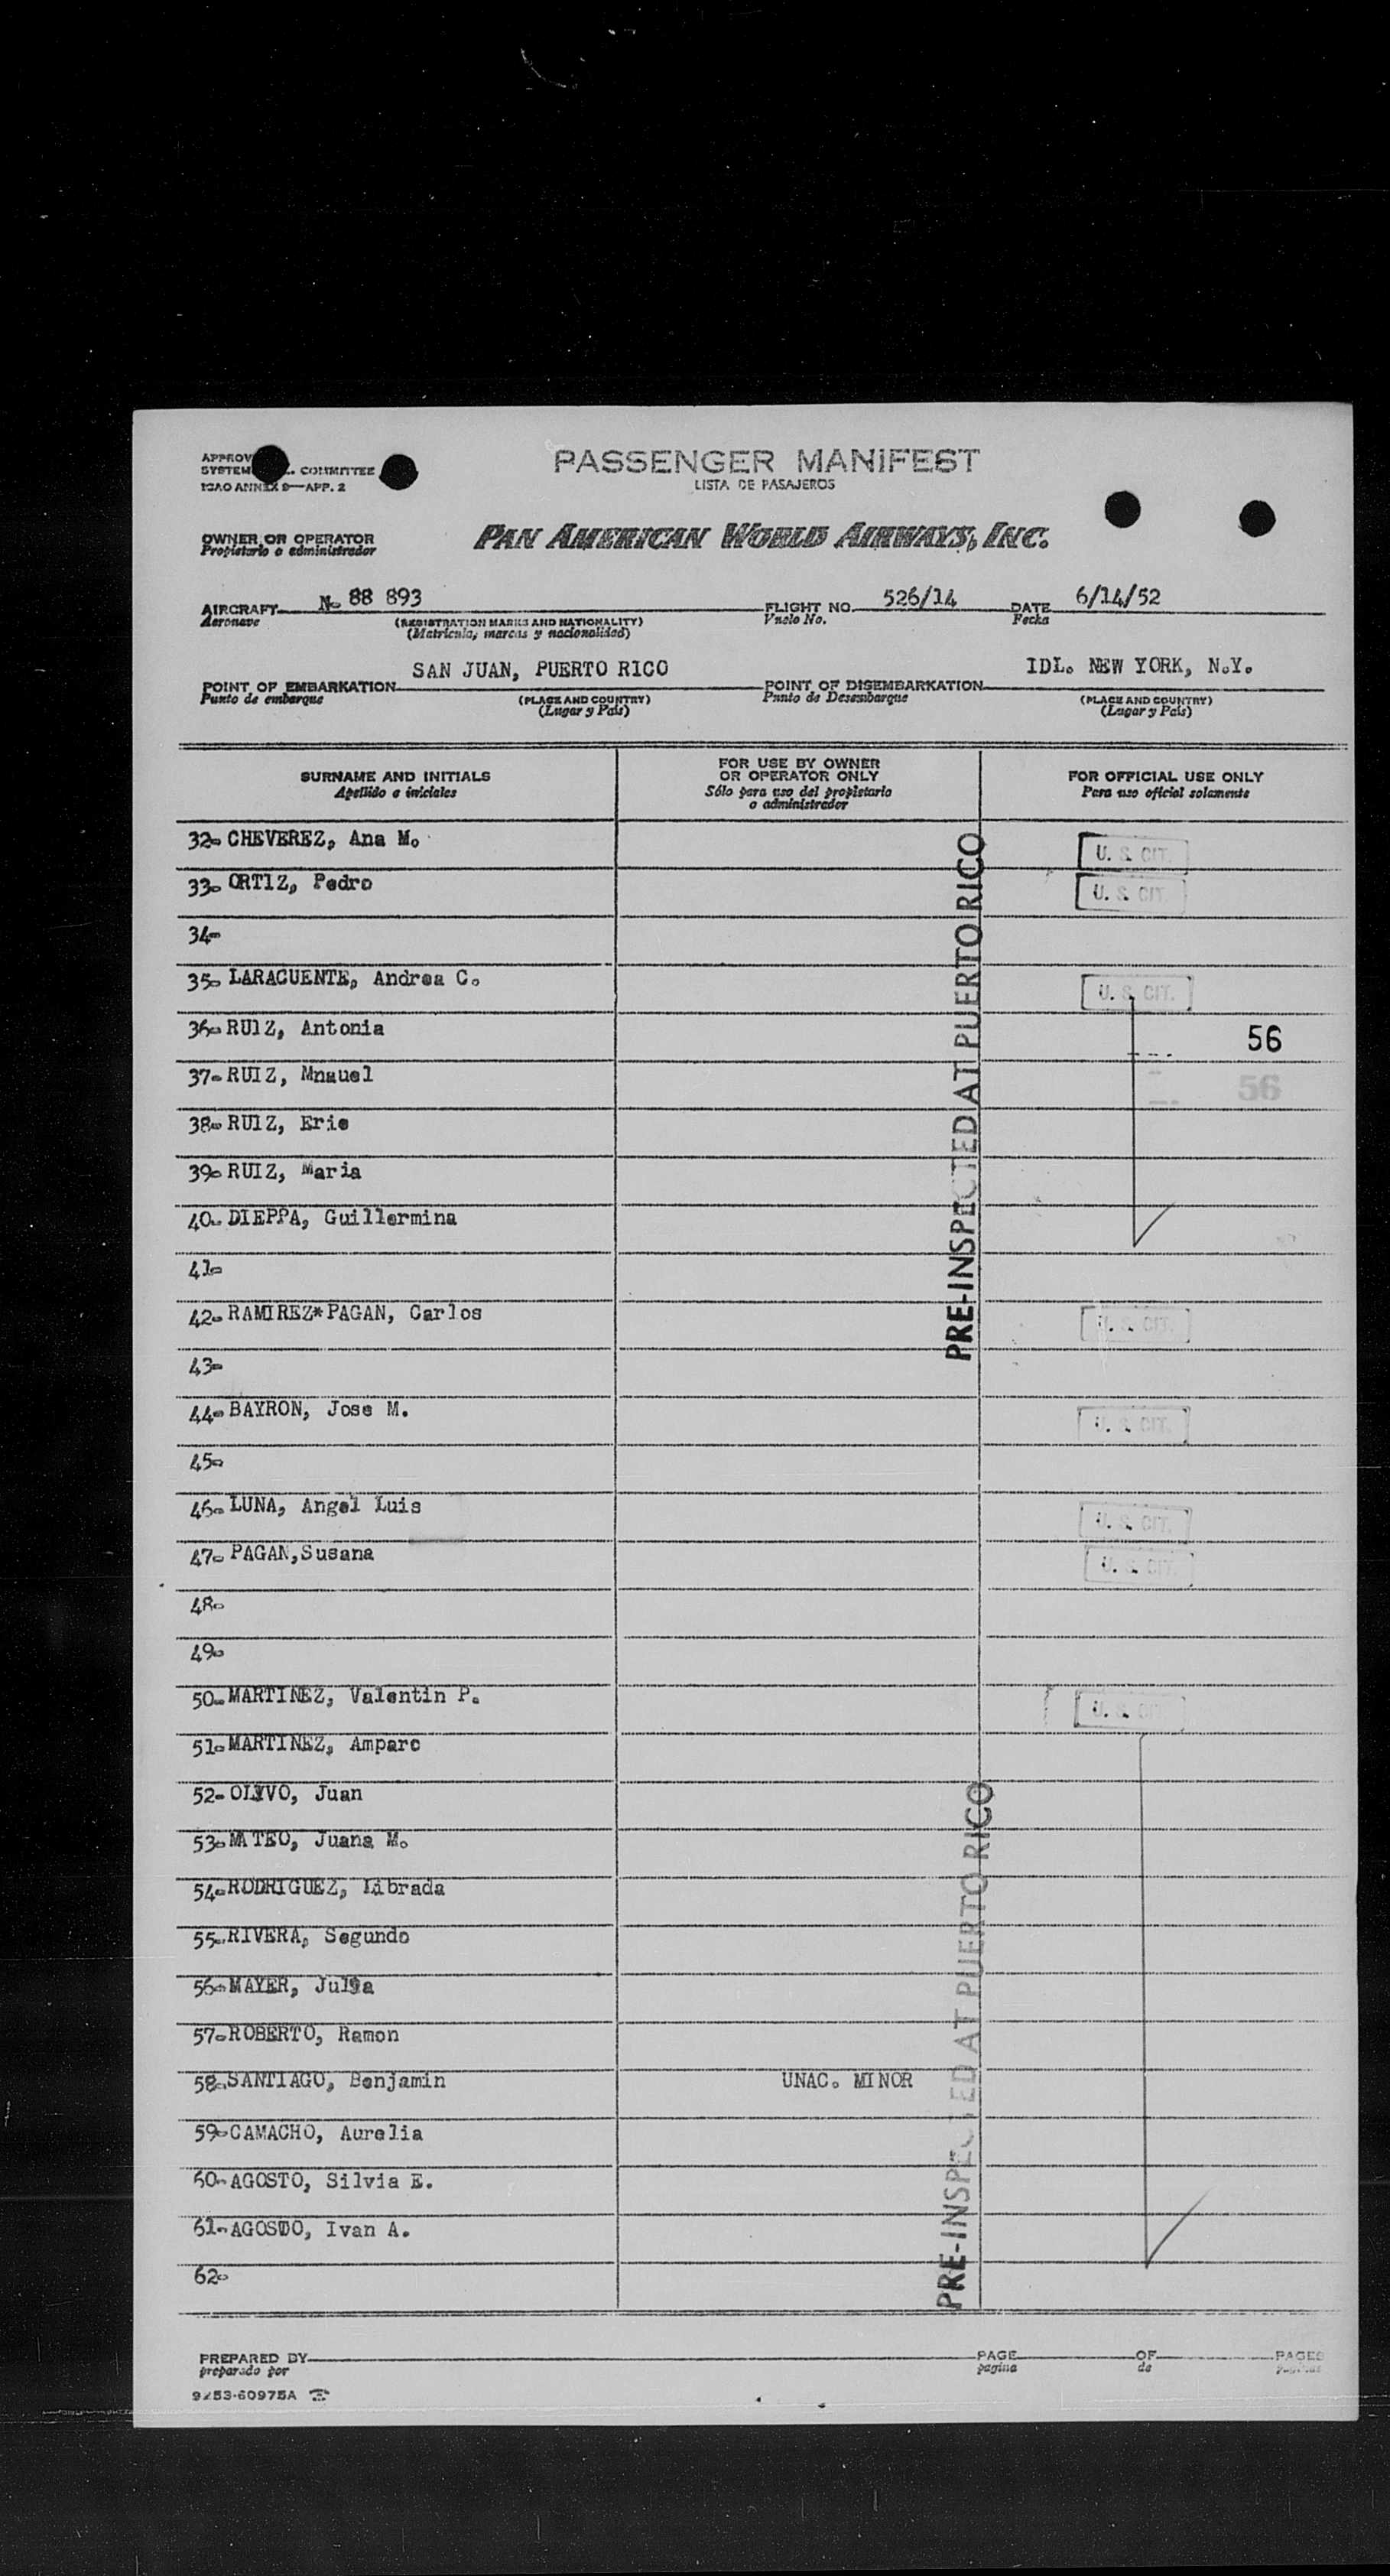 PASSENGER MANIFEST
LISTA DE PASAJEROS
APPROV
SYSTEM . COMMITTEE
ICAO ANNEX 9—APP. 2
OWNER OR OPERATOR
Propietario o administrador
PAN AMERICAN WORLD AIRWAYS, INC.
AIRCRAFT N- 88 893 FLIGHT NO. 526/14 DATE 6/14/52
Aeronave (REGISTRATION MARKS AND NATIONALITY) Vuelo No. Fecha
(Matrícula, marcas y nacionalidad)
POINT OF EMBARKATION SAN JUAN, PUERTO RICO POINT OF DISEMBARKATION IDL. NEW YORK, N.Y.
Punto de embarque (PLACE AND COUNTRY) Punto de Desembarque (PLACE AND COUNTRY)
(Lugar y País) (Lugar y País)
SURNAME AND INITIALS
Apellido e iniciales
FOR USE BY OWNER
OR OPERATOR ONLY
Sólo para uso del propietario
o administrador
FOR OFFICIAL USE ONLY
Para uso oficial solamente
32- CHEVEREZ, Ana M. U. S. CIT.
33- ORTIZ, Pedro U. S. CIT.
34-
35- LARACUENTE, Andrea C. U. S. CIT.
36- RUIZ, Antonia 56
37- RUIZ, Mnauel 56
38- RUIZ, Eric
39- RUIZ, Maria
40- DIEPPA, Guillermina
41-
42- RAMIREZ*PAGAN, Carlos U. S. CIT.
43-
44- BAYRON, Jose M. U. S. CIT.
45-
46- LUNA, Angel Luis U. S. CIT.
47- PAGAN,Susana U. S. CIT.
48-
49-
50- MARTINEZ, Valentin P. U. S. CIT.
51- MARTINEZ, Amparo
52- OLIVO, Juan
53- MATEO, Juana M.
54- RODRIGUEZ, Librada
55- RIVERA, Segundo
56- MAYER, Julia
57- ROBERTO, Ramon
58- SANTIAGO, Benjamin UNAC. MINOR
59- CAMACHO, Aurelia
60- AGOSTO, Silvia E.
61- AGOSTO, Ivan A.
62-
PRE-INSPECTED AT PUERTO RICO
PRE-INSPECTED AT PUERTO RICO
PREPARED BY PAGE OF PAGES
preparado por pagina de paginas
9253-60975A